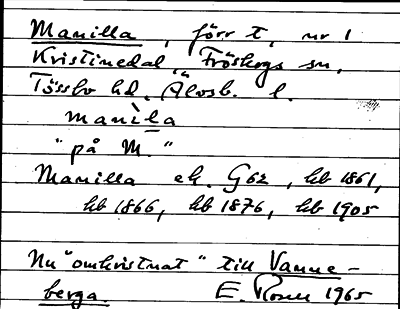 Manilla, förr t, nr 1
Kristinedal, Fröskogs sn,
Tössbo hd, Älvsb. l.
manìla
"på M."
Manilla ek. G62, hb 1861,
hb 1866, hb 1876, hb 1905
Nu "omkristnat" till Vanne-
berga. E. Rosen 1965